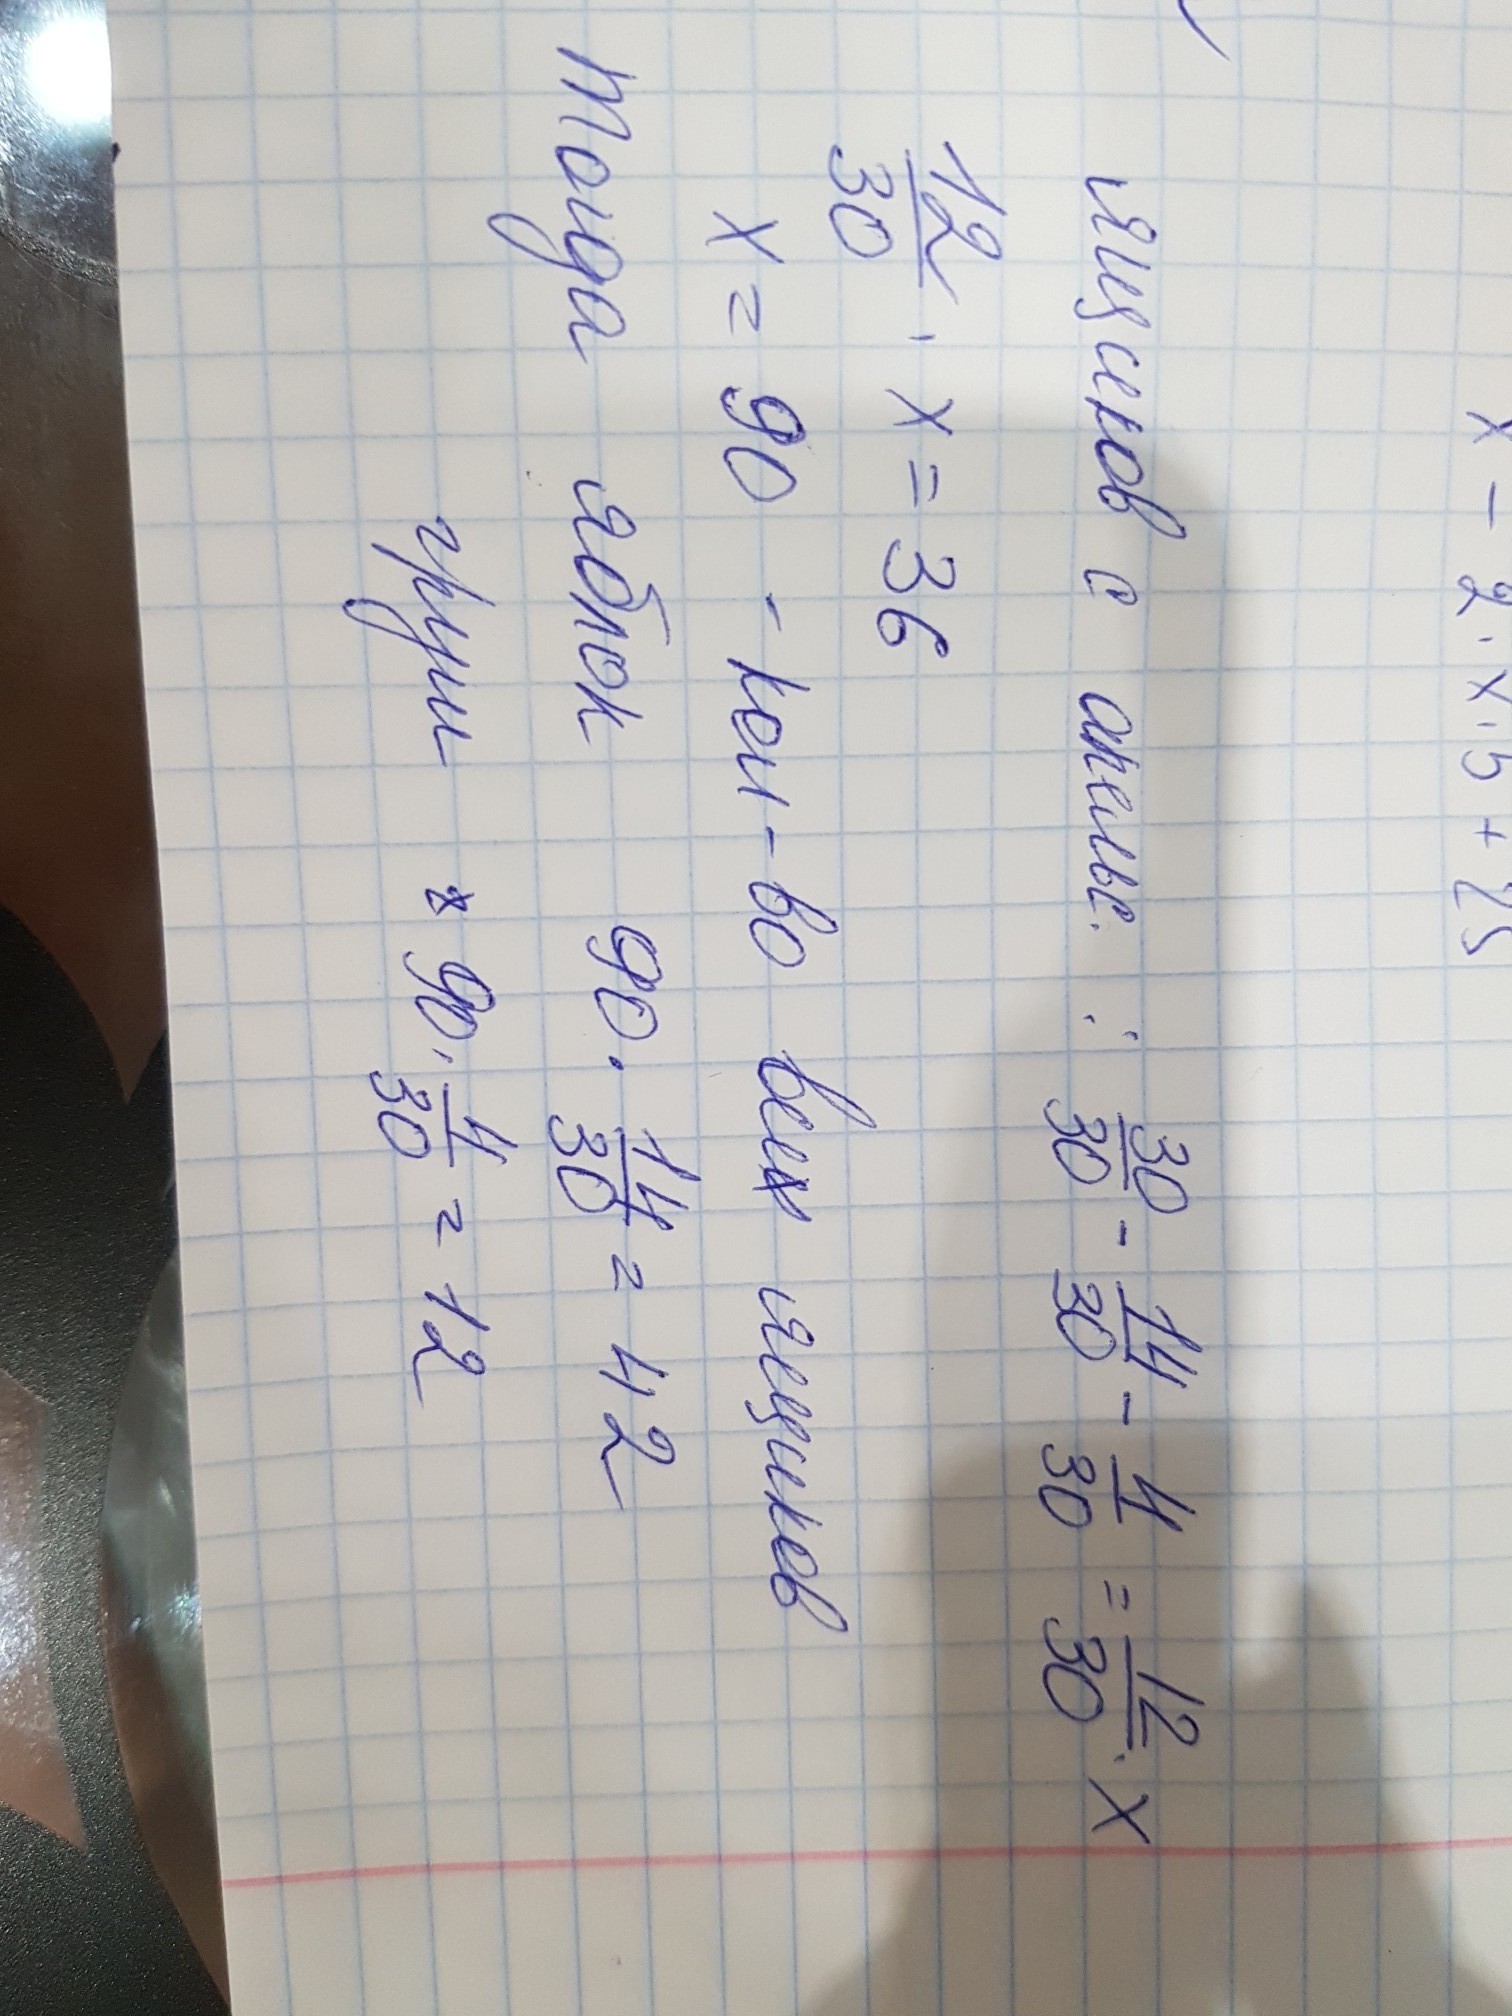 x - 2 · x · 5 + 25
ящиков с апельс. : 30/30 - 14/30 - 4/30 = 12/30 · x
12/30 · x = 36
x = 90 - кол-во всех ящиков
тогда яблок 90 · 14/30 = 42
груш 90 · 4/30 = 12